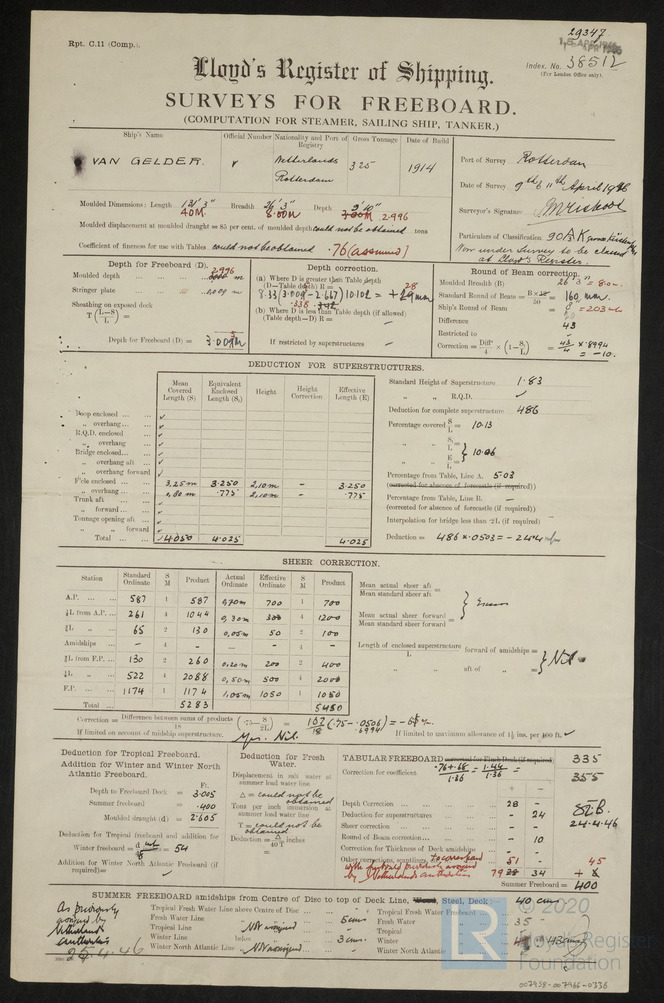 Rpt. C.11 (Comp.).
29347
Index. No. 38512
(For London Office only).
Lloyd's Register of Shipping.
SURVEYS FOR FREEBOARD.
(COMPUTATION FOR STEAMER, SAILING SHIP, TANKER.)
Ship's Name
Official Number
Nationality and Port of Registry
Gross Tonnage
Date of Build
VAN GELDER.
Netherlands
Rotterdam
325
1914
Port of Survey Rotterdam
Date of Survey 9th & 11th April 1946
Surveyor's Signature
Particulars of Classification 90A K
Now under survey to be classed
at Lloyd's Register.
Moulded Dimensions: Length 131' 3" Breadth 26' 3" Depth 9' 10"
40M. 8.00M 2.996
Moulded displacement at moulded draught = 85 per cent. of moulded depth could not be obtained tons
Coefficient of fineness for use with Tables could not be obtained .76 (assumed)
Depth for Freeboard (D).
Moulded depth 2.996 m
Stringer plate .009 m
Sheathing on exposed deck
T (L-S / L) =
Depth for Freeboard (D) = 3.005 M
Depth correction.
(a) Where D is greater than Table depth
(D—Table depth) R =
8.33 (3.009 - 2.667) 10.102 = + 29 mm
28
.338
(b) Where D is less than Table depth (if allowed)
(Table depth—D) R =
If restricted by superstructures
Round of Beam correction.
Moulded Breadth (B) 26' 3" = 8.0m
Standard Round of Beam = B × 12 / 50 = 160 mm.
Ship's Round of Beam = 8" = 203 m
Difference 43
Restricted to
Correction = Diff / 4 × (1 - S1 / L) = 43 / 4 × .8994
= -10.
DEDUCTION FOR SUPERSTRUCTURES.
Mean Covered Length (S)
Equivalent Enclosed Length (S1)
Height
Height Correction
Effective Length (E)
Poop enclosed
„ overhang
R.Q.D. enclosed
„ overhang
Bridge enclosed
„ overhang aft
„ overhang forward
F'cle enclosed 3.25 m 3.250 2.10 m - 3.250
„ overhang .80 m .775 2.10 m - .775
Trunk aft
„ forward
Tonnage opening aft
„ „ forward
Total 4.050 4.025 4.025
Standard Height of Superstructure 1.83
„ „ R.Q.D. ✓
Deduction for complete superstructure 486
Percentage covered S / L = 10.13
„ „ S1 / L =
„ „ E / L = 10.06
Percentage from Table, Line A. 5.03
(corrected for absence of forecastle (if required))
Percentage from Table, Line B. —
(corrected for absence of forecastle (if required))
Interpolation for bridge less than ·2L (if required) —
Deduction = 486 × .0503 = - 24.4 m/m
SHEER CORRECTION.
Station
Standard Ordinate
S M
Product
Actual Ordinate
Effective Ordinate
S M
Product
A.P. 587 1 587 0,70m 700 1 700
⅙L from A.P. 261 4 1044 0,30m 300 4 1200
⅓L „ 65 2 130 0,05m 50 2 100
Amidships - 4 - - - 4 -
⅓L from F.P. 130 2 260 0,20m 200 2 400
⅙L „ 522 4 2088 0,50m 500 4 2000
F.P. 1174 1 1174 1,05m 1050 1 1050
Total 5283 5450
Mean actual sheer aft
Mean standard sheer aft = Excess
Mean actual sheer forward
Mean standard sheer forward =
Length of enclosed superstructure forward of amidships =
L
„ „ aft of „ = Nil
Correction = Difference between sums of products / 18 (·75 - S / 2L) = 167 / 18 (.75 - .0506)
.6994
If limited on account of midship superstructure. Yes. Nil.
If limited to maximum allowance of 1½ ins. per 100 ft. ✓
Deduction for Tropical Freeboard.
Addition for Winter and Winter North Atlantic Freeboard.
Ft.
Depth to Freeboard Deck = 3.005
Summer freeboard = .400
Moulded draught (d) = 2.605
Deduction for Tropical freeboard and addition for
Winter freeboard = = 54
Addition for Winter North Atlantic Freeboard (if required) =
Deduction for Fresh Water.
Displacement in salt water at summer load water line
Δ = could not be obtained
Tons per inch immersion at summer load water line
T = could not be obtained
Deduction = Δ / 40 T inches
=
TABULAR FREEBOARD corrected for Flush Deck (if required) 335
Correction for coefficient .76 + .68 / 1.36 = 1.44 / 1.36 = 355
+ -
Depth Correction 28 -
Deduction for superstructures - 24
Sheer correction - -
Round of Beam correction - 10
Correction for Thickness of Deck amidships
Other corrections, scantlings, to correspond 51
with freeboard previously assigned
by Netherlands Authorities 79 34
45
Summer Freeboard = 400
24.4.46
SUMMER FREEBOARD amidships from Centre of Disc to top of Deck Line, Wood, Steel, Deck: 40 cms
Tropical Fresh Water Line above Centre of Disc
Fresh Water Line „ „ 5 cms
Tropical Line „ „ Not assigned
Winter Line below „ „ 3 cms
Winter North Atlantic Line „ „ Not assigned
Tropical Fresh Water Freeboard
Fresh Water „ 35
Tropical „
Winter „ 43 cms
Winter North Atlantic „
As previously
assigned by
Netherland
Authorities
25.4.46
© 2020
Lloyd's Register
Foundation
LR
007958-007966-0336